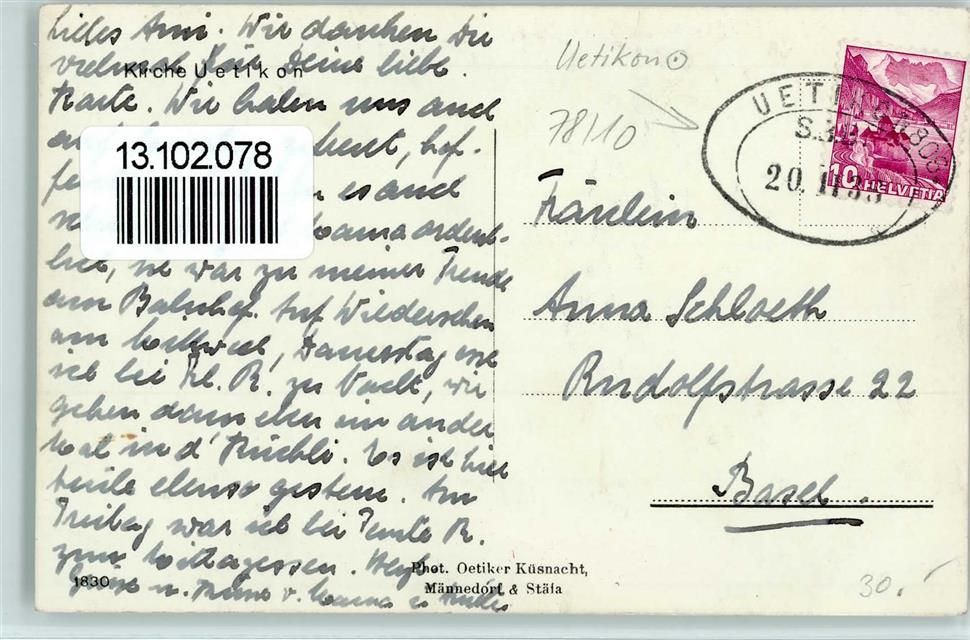 Liebes Anni. Wir danken Dir
vielmal für Deine liebe
Kirche Uetikon
Karte. Wir haben uns auch
hof-
es auch
Mama ordent-
lich, sie war zu meiner Freude
am Bahnhof. Auf Wiedersehen
am Mittwoch, Donnerstag
ich bei Frl. R. zu Nacht, wir
gehen dann eben ein ander
Mal in d' Kuchli. Es ist hier
heute ebenso gestern. Am
Freitag war ich bei Tante R.
zum Mittagessen. Herzl.
Grüsse u. Küsse v. Mama u.
1830
Phot. Oetiker Küsnacht,
Männedorf & Stäfa
13.102.078
Uetikon
78/10
UETIKON
20. II
10 HELVETIA
Fräulein
Anna Schloeth
Rudolfstrasse 22
Basel.
30.-